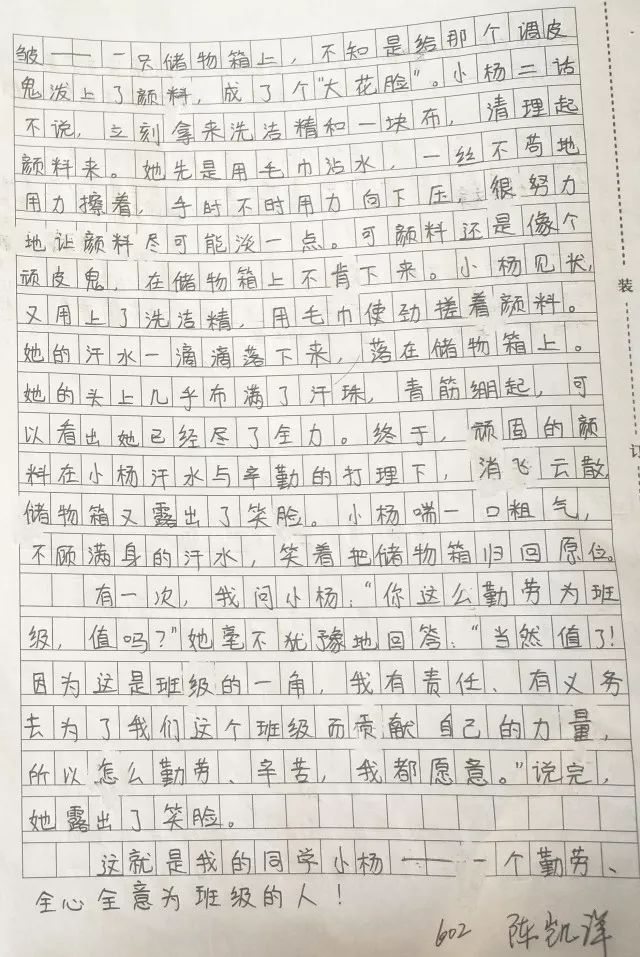 皱——一只储物箱上，不知是给那个调皮
鬼泼上了颜料，成了个“大花脸”。小杨二话
不说，立刻拿来洗洁精和一块布，清理起
颜料来。她先是用毛巾沾水，一丝不苟地
用力擦着，手时不时用力向下压，很努力
地让颜料尽可能淡一点。可颜料还是像个
顽皮鬼，在储物箱上不肯下来。小杨见状，
又用上了洗洁精，用毛巾使劲搓着颜料。
她的汗水一滴滴落下来，落在储物箱上。
她的头上几乎布满了汗珠，青筋绷起，可
以看出她已经尽了全力。终于，顽固的颜
料在小杨汗水与辛勤的打理下，消飞云散，
储物箱又露出了笑脸。小杨喘一口粗气，
不顾满身的汗水，笑着把储物箱归回原位。
有一次，我问小杨：“你这么勤劳为班
级，值吗？”她毫不犹豫地回答：“当然值了！
因为这是班级的一角，我有责任、有义务
去为了我们这个班级而贡献自己的力量，
所以怎么勤劳、辛苦，我都愿意。”说完，
她露出了笑脸。
这就是我的同学小杨——一个勤劳、
全心全意为班级的人！
602 陈凯洋
装
订